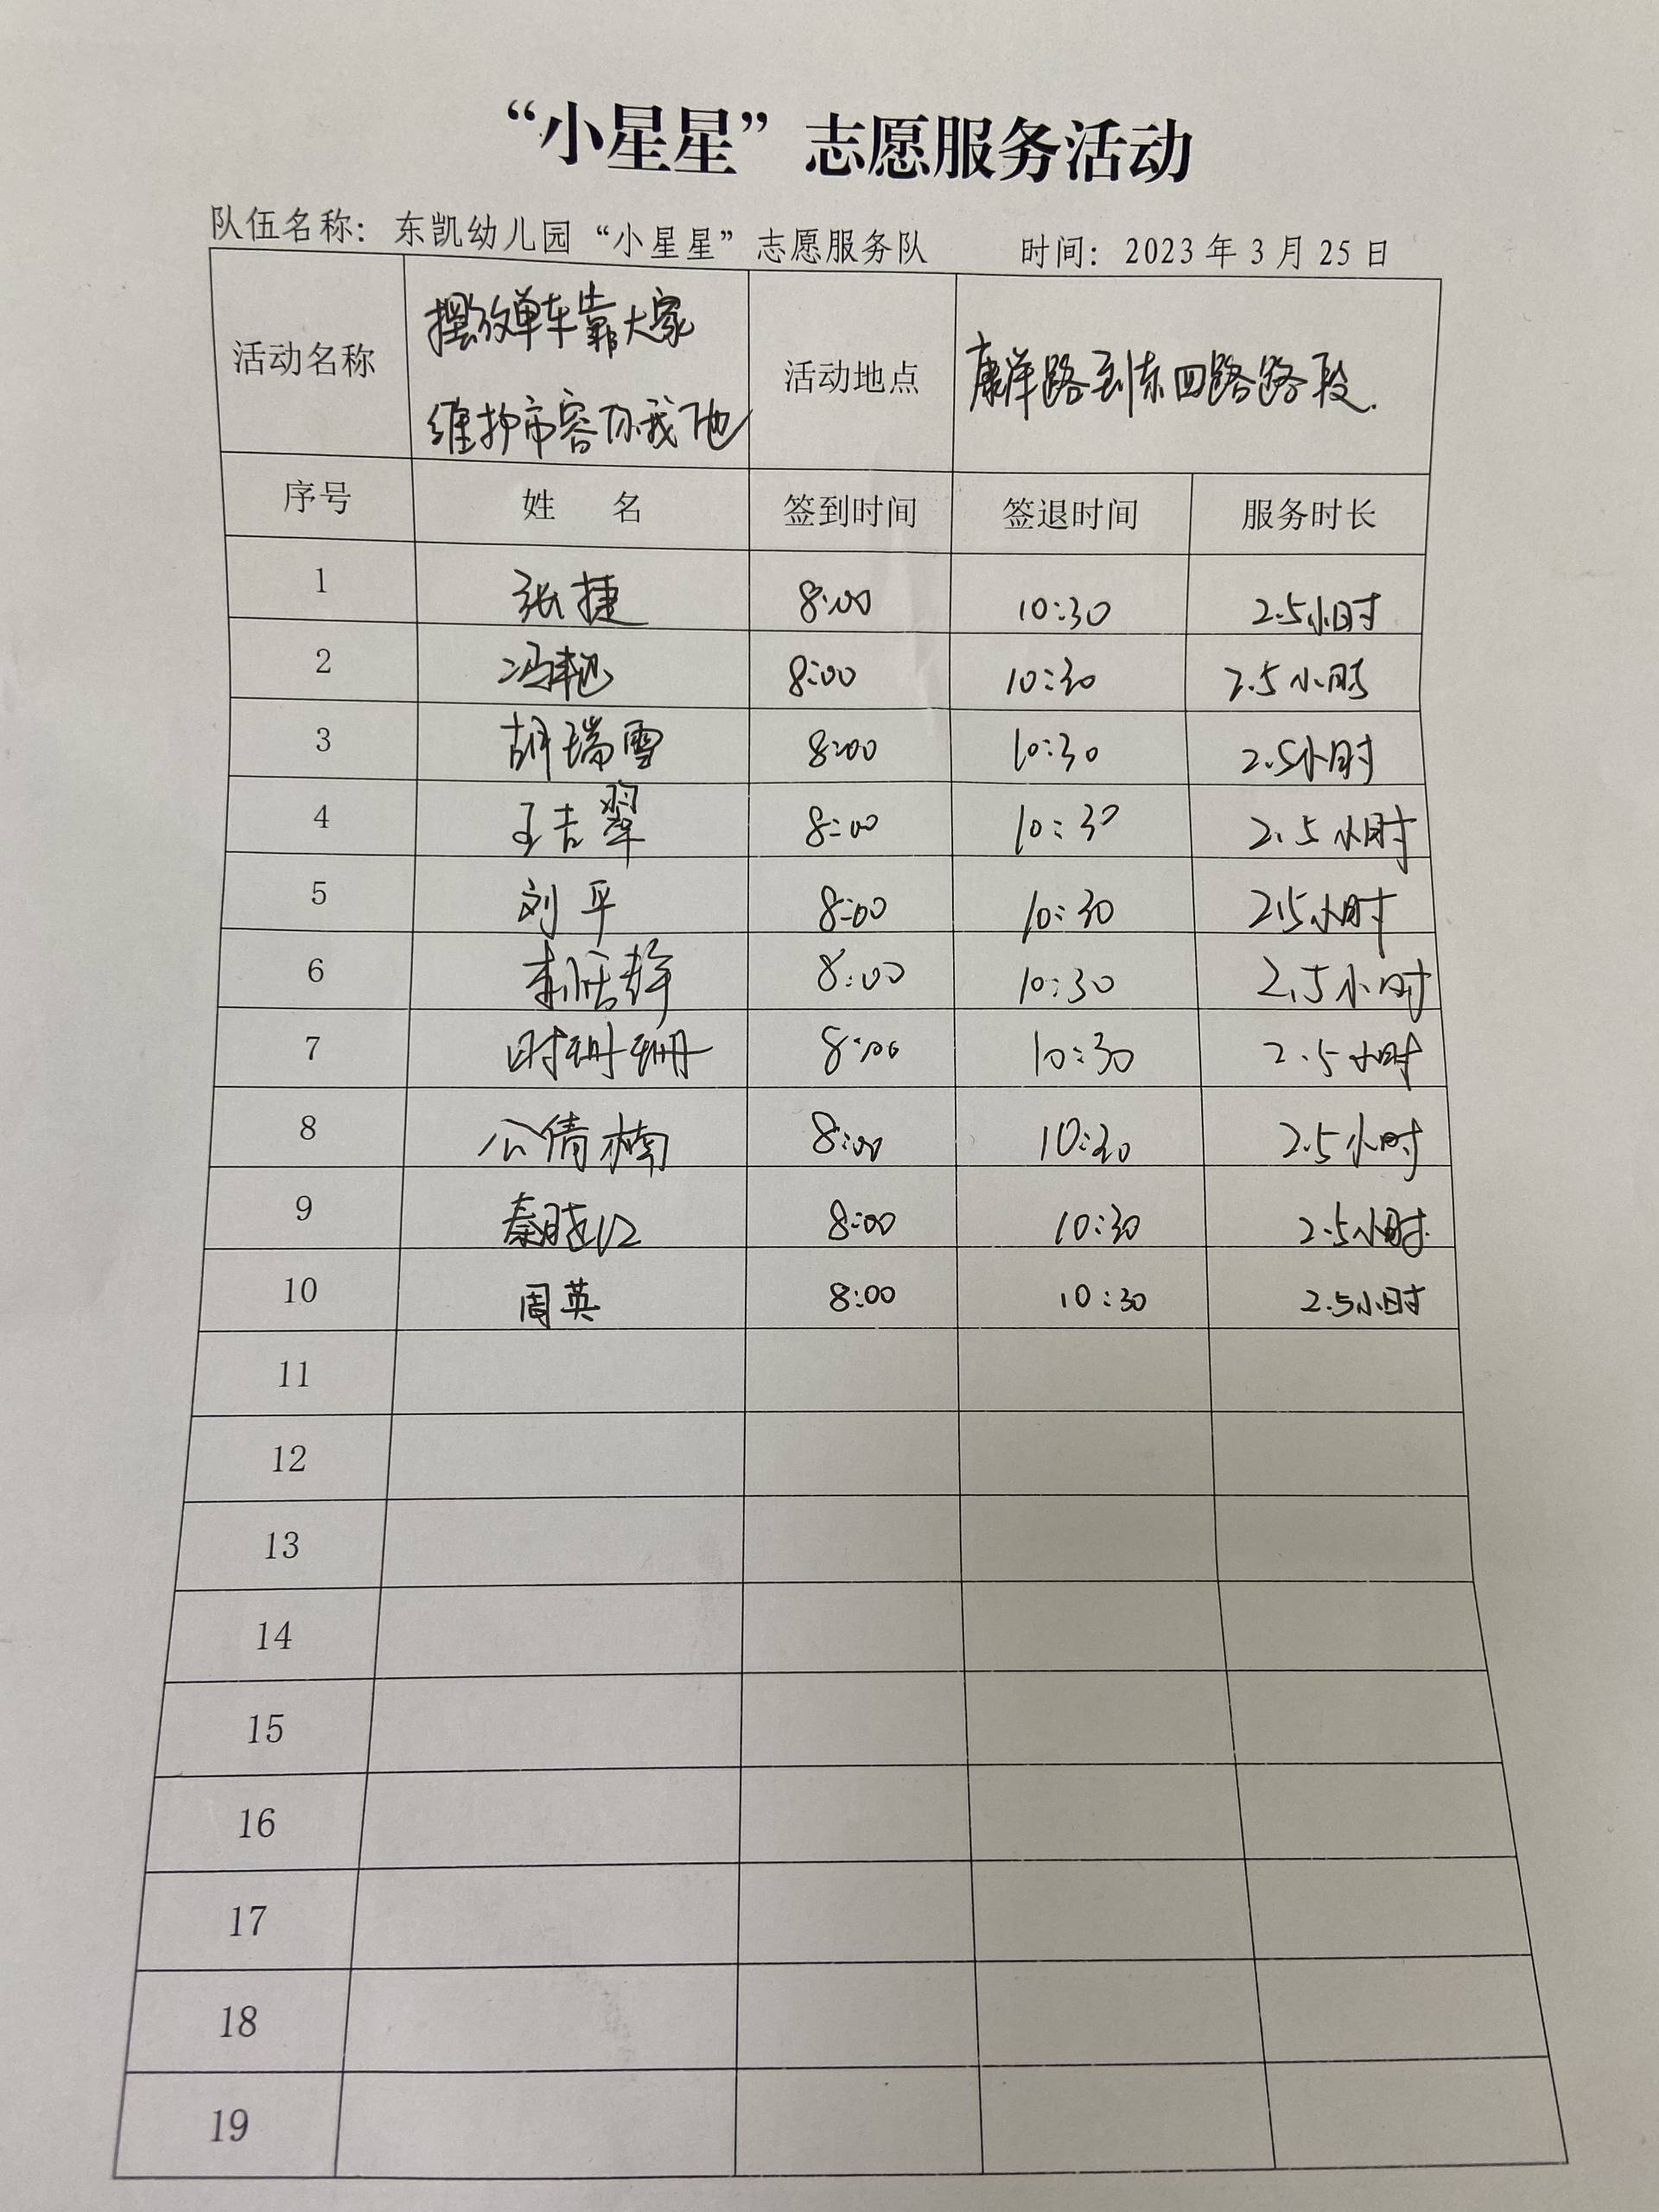 “小星星”志愿服务活动
队伍名称：东凯幼儿园“小星星”志愿服务队 时间：2023年3月25日
活动名称 摆放单车靠大家 维护市容你我他 活动地点 康洋路到东四路路段.
序号 姓 名 签到时间 签退时间 服务时长
1 张捷 8:00 10:30 2.5小时
2 冯艳 8:00 10:30 2.5小时
3 胡瑞雪 8:00 10:30 2.5小时
4 王吉翠 8:00 10:30 2.5小时
5 刘平 8:00 10:30 2.5小时
6 李恬静 8:00 10:30 2.5小时
7 时珊珊 8:00 10:30 2.5小时
8 公倩楠 8:00 10:30 2.5小时
9 秦晓 8:00 10:30 2.5小时.
10 周英 8:00 10:30 2.5小时
11
12
13
14
15
16
17
18
19